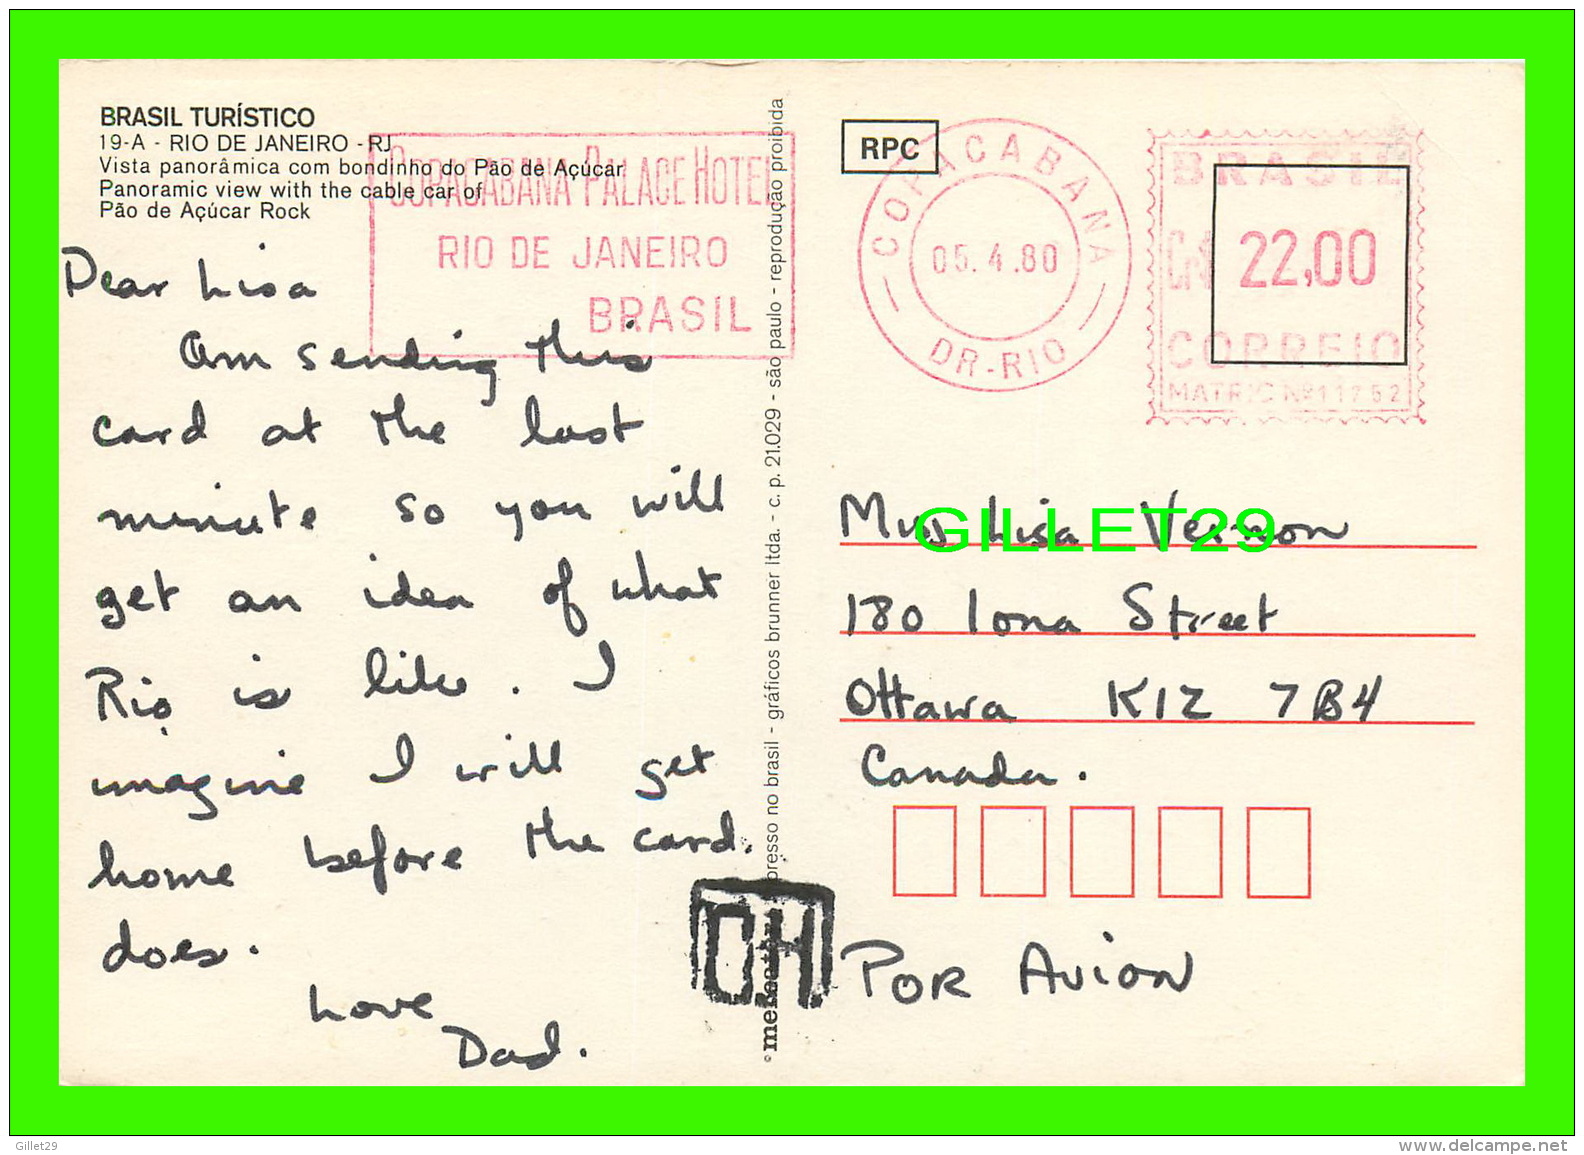 BRASIL TURÍSTICO
19-A - RIO DE JANEIRO - RJ
Vista panorâmica com bondinho do Pão de Açúcar
Panoramic view with the cable car of
Pão de Açúcar Rock
COPACABANA PALACE HOTEL
RIO DE JANEIRO
BRASIL
Dear Lisa
Am sending this
card at the last
minute so you will
get an idea of what
Rio is like. I
imagine I will get
home before the card.
does.
Love
Dad.
presso no brasil - gráficos brunner ltda. - c. p. 21.029 - são paulo - reprodução proibida
CH
RPC
COPACABANA
05.4.80
DR-RIO
BRASIL
22,00
CORREIO
MATRIC Nº 11252
Miss Lisa Vernon
180 Iona Street
Ottawa K1Z 7B4
Canada.
POR AVION
GILLET29
Gillet29
www.delcampe.net